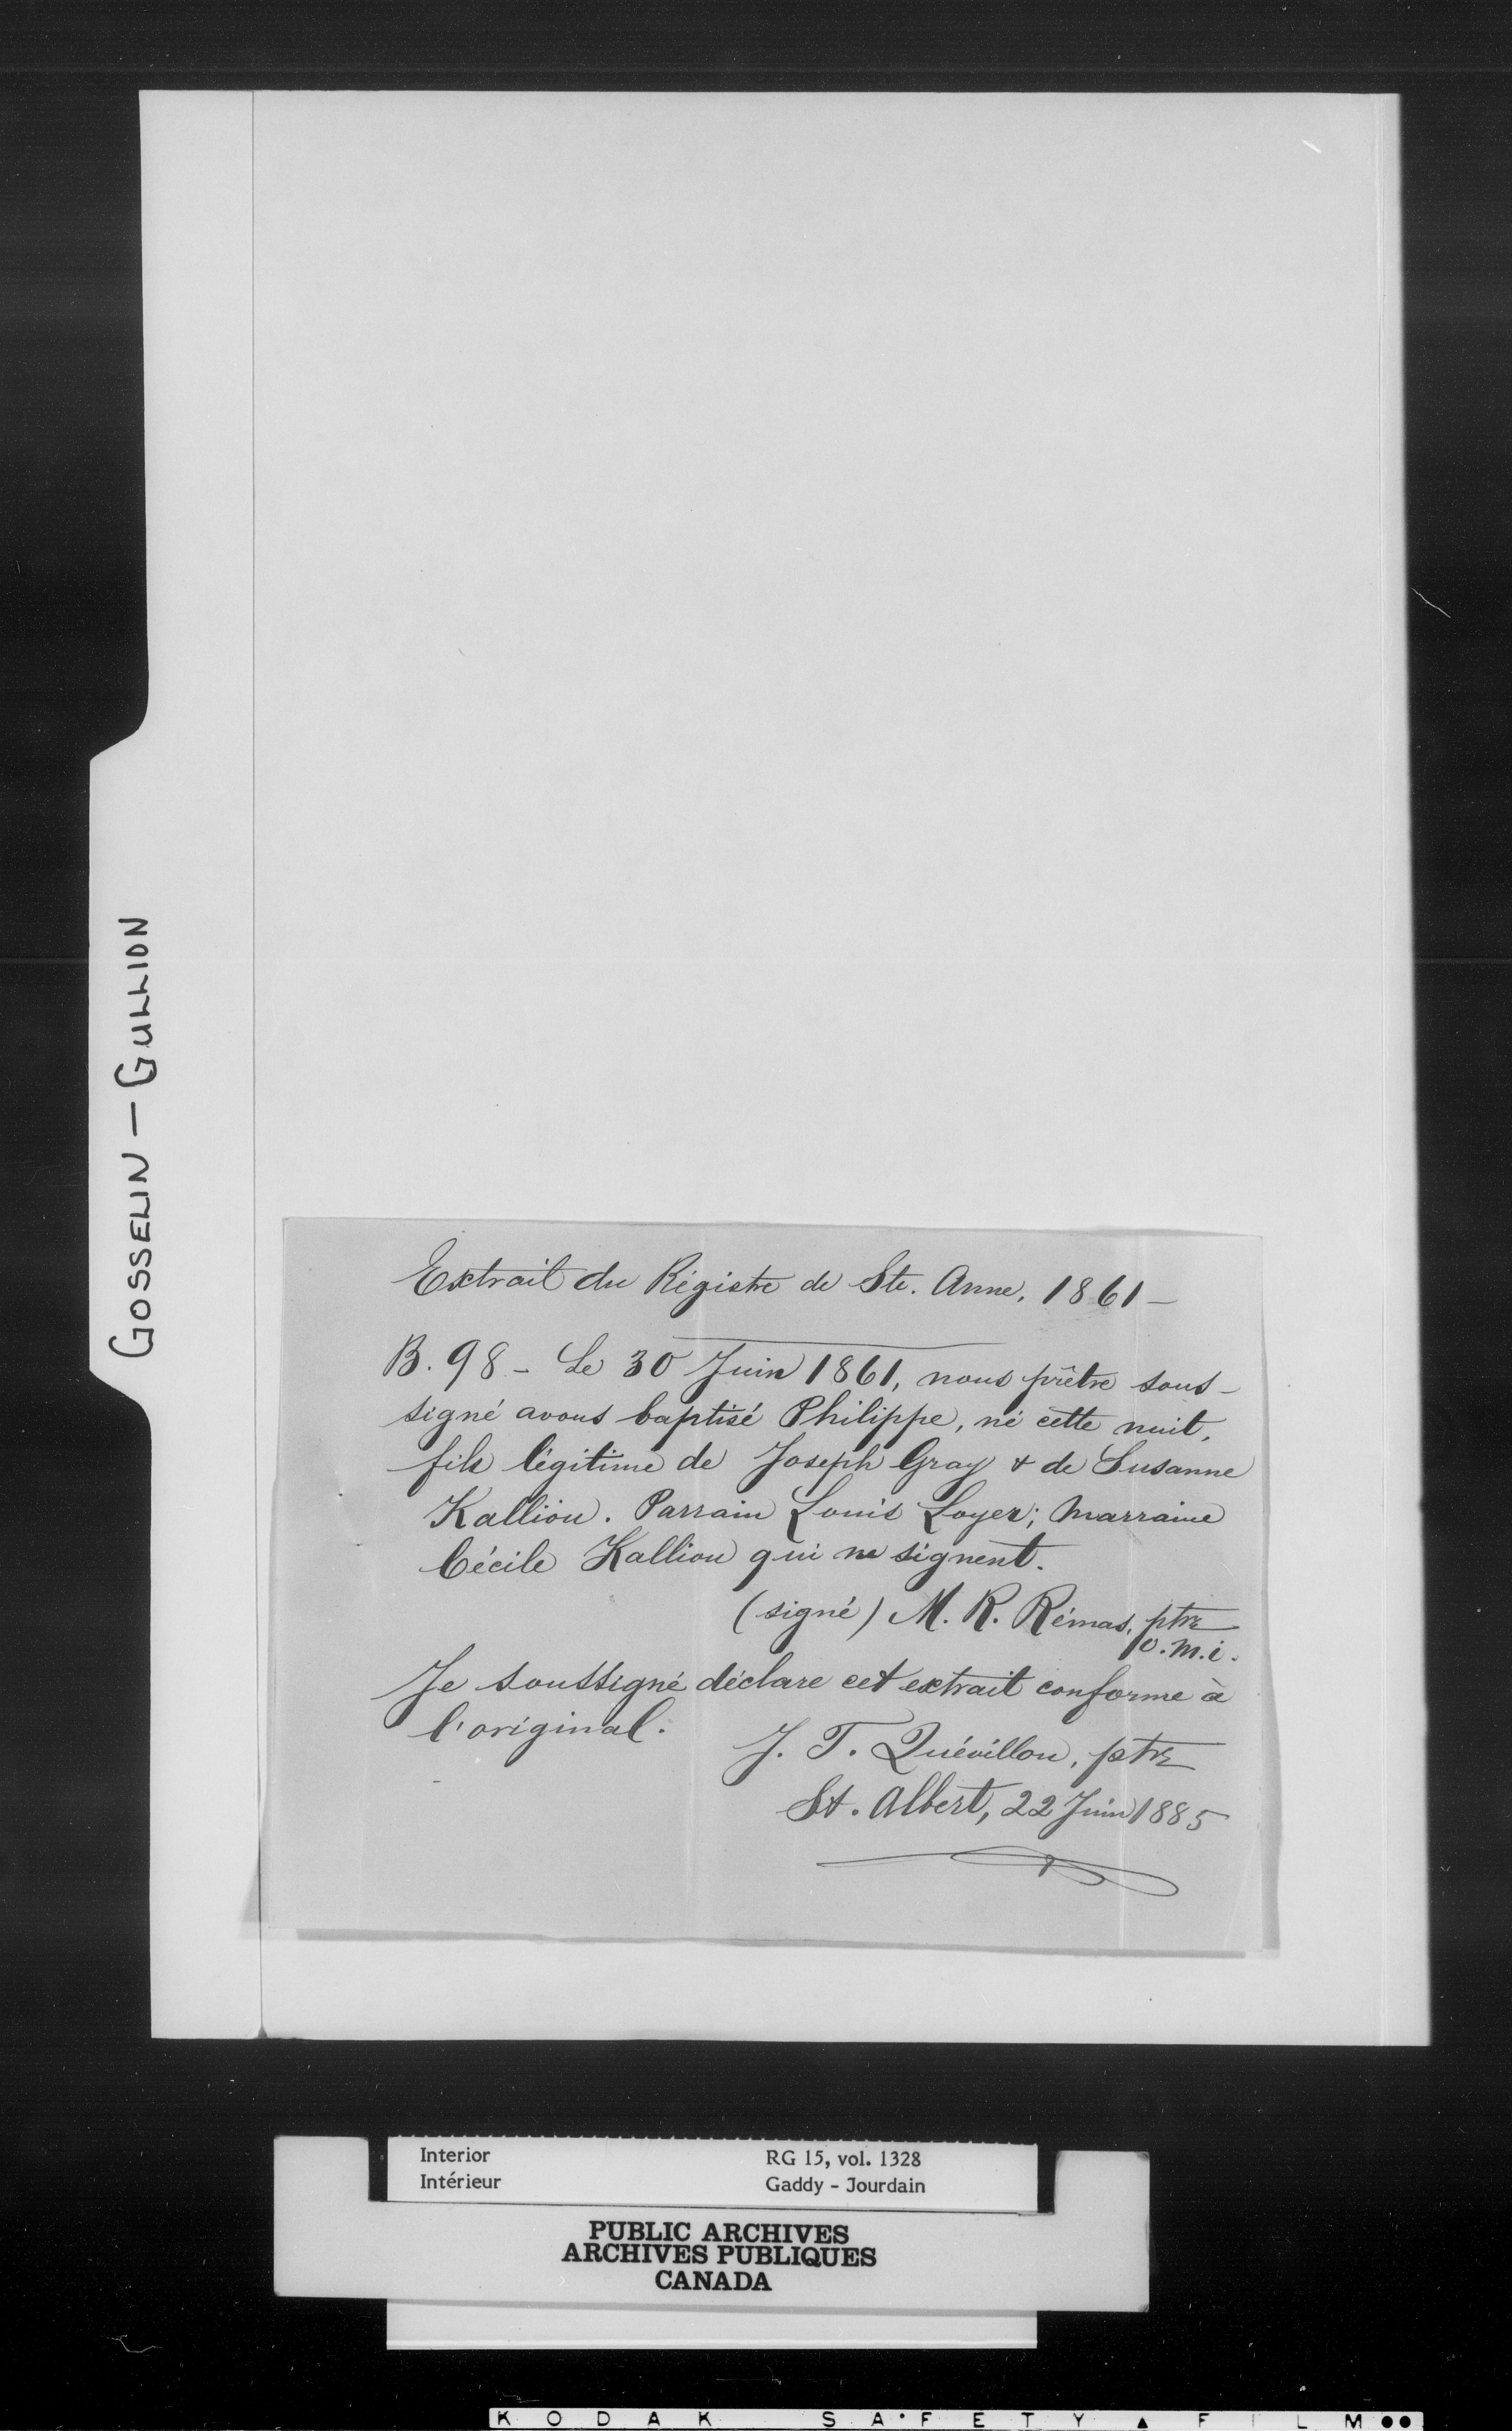 GOSSELIN — GULLION
Extrait du Régistre de Ste. Anne, 1861 —
B. 98 - Le 30 Juin 1861, nous prêtre sous-
signé avons baptisé Philippe, né cette nuit,
fils légitime de Joseph Gray & de Susanne
Kalliou. Parrain Louis Loyer; Marraine
Cécile Kalliou qui ne signent.
(signé) M. R. Rémas, ptre
o.m.i.
Je soussigné déclare cet extrait conforme à
l'original.
J. T. Quévillon, ptre
St. Albert, 22 Juin 1885
Interior RG 15, vol. 1328
Intérieur Gaddy - Jourdain
PUBLIC ARCHIVES
ARCHIVES PUBLIQUES
CANADA
KODAK SA•FETY ▲ FILM ●●